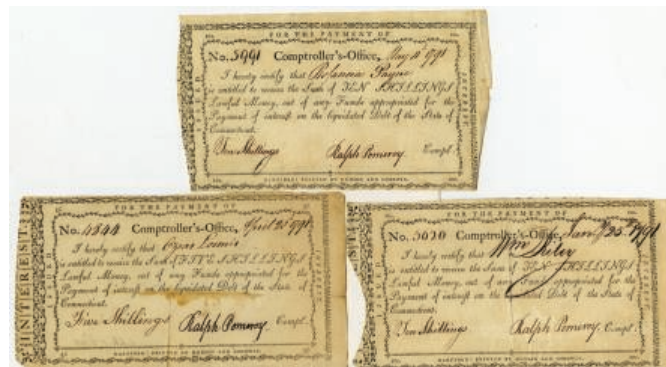 FOR THE PAYMENT OF
No. 5991 Comptroller's-Office, May 1791
I hereby certify that Payne
is entitled to receive the Sum of TEN SHILLINGS
Lawful Money, out of any Funds appropriated for the
Payment of interest on the liquidated Debt of the State of
Connecticut.
Ten Shillings Ralph Pomeroy Compt.
HARTFORD: PRINTED BY HUDSON AND GOODWIN.
INTEREST
ISSUED
FOR THE PAYMENT OF
No. 4844 Comptroller's-Office, April 1791
I hereby certify that Loomis
is entitled to receive the Sum of FIVE SHILLINGS
Lawful Money, out of any Funds appropriated for the
Payment of interest on the liquidated Debt of the State of
Connecticut.
Five Shillings Ralph Pomeroy Compt.
HARTFORD: PRINTED BY HUDSON AND GOODWIN.
FOR THE PAYMENT OF
No. Comptroller's-Office, Jany 25 1791
I hereby certify that Wm
is entitled to receive the Sum of TEN SHILLINGS
Lawful Money, out of any Funds appropriated for the
Payment of interest on the liquidated Debt of the State of
Connecticut.
Ten Shillings Ralph Pomeroy Compt.
HARTFORD: PRINTED BY HUDSON AND GOODWIN.